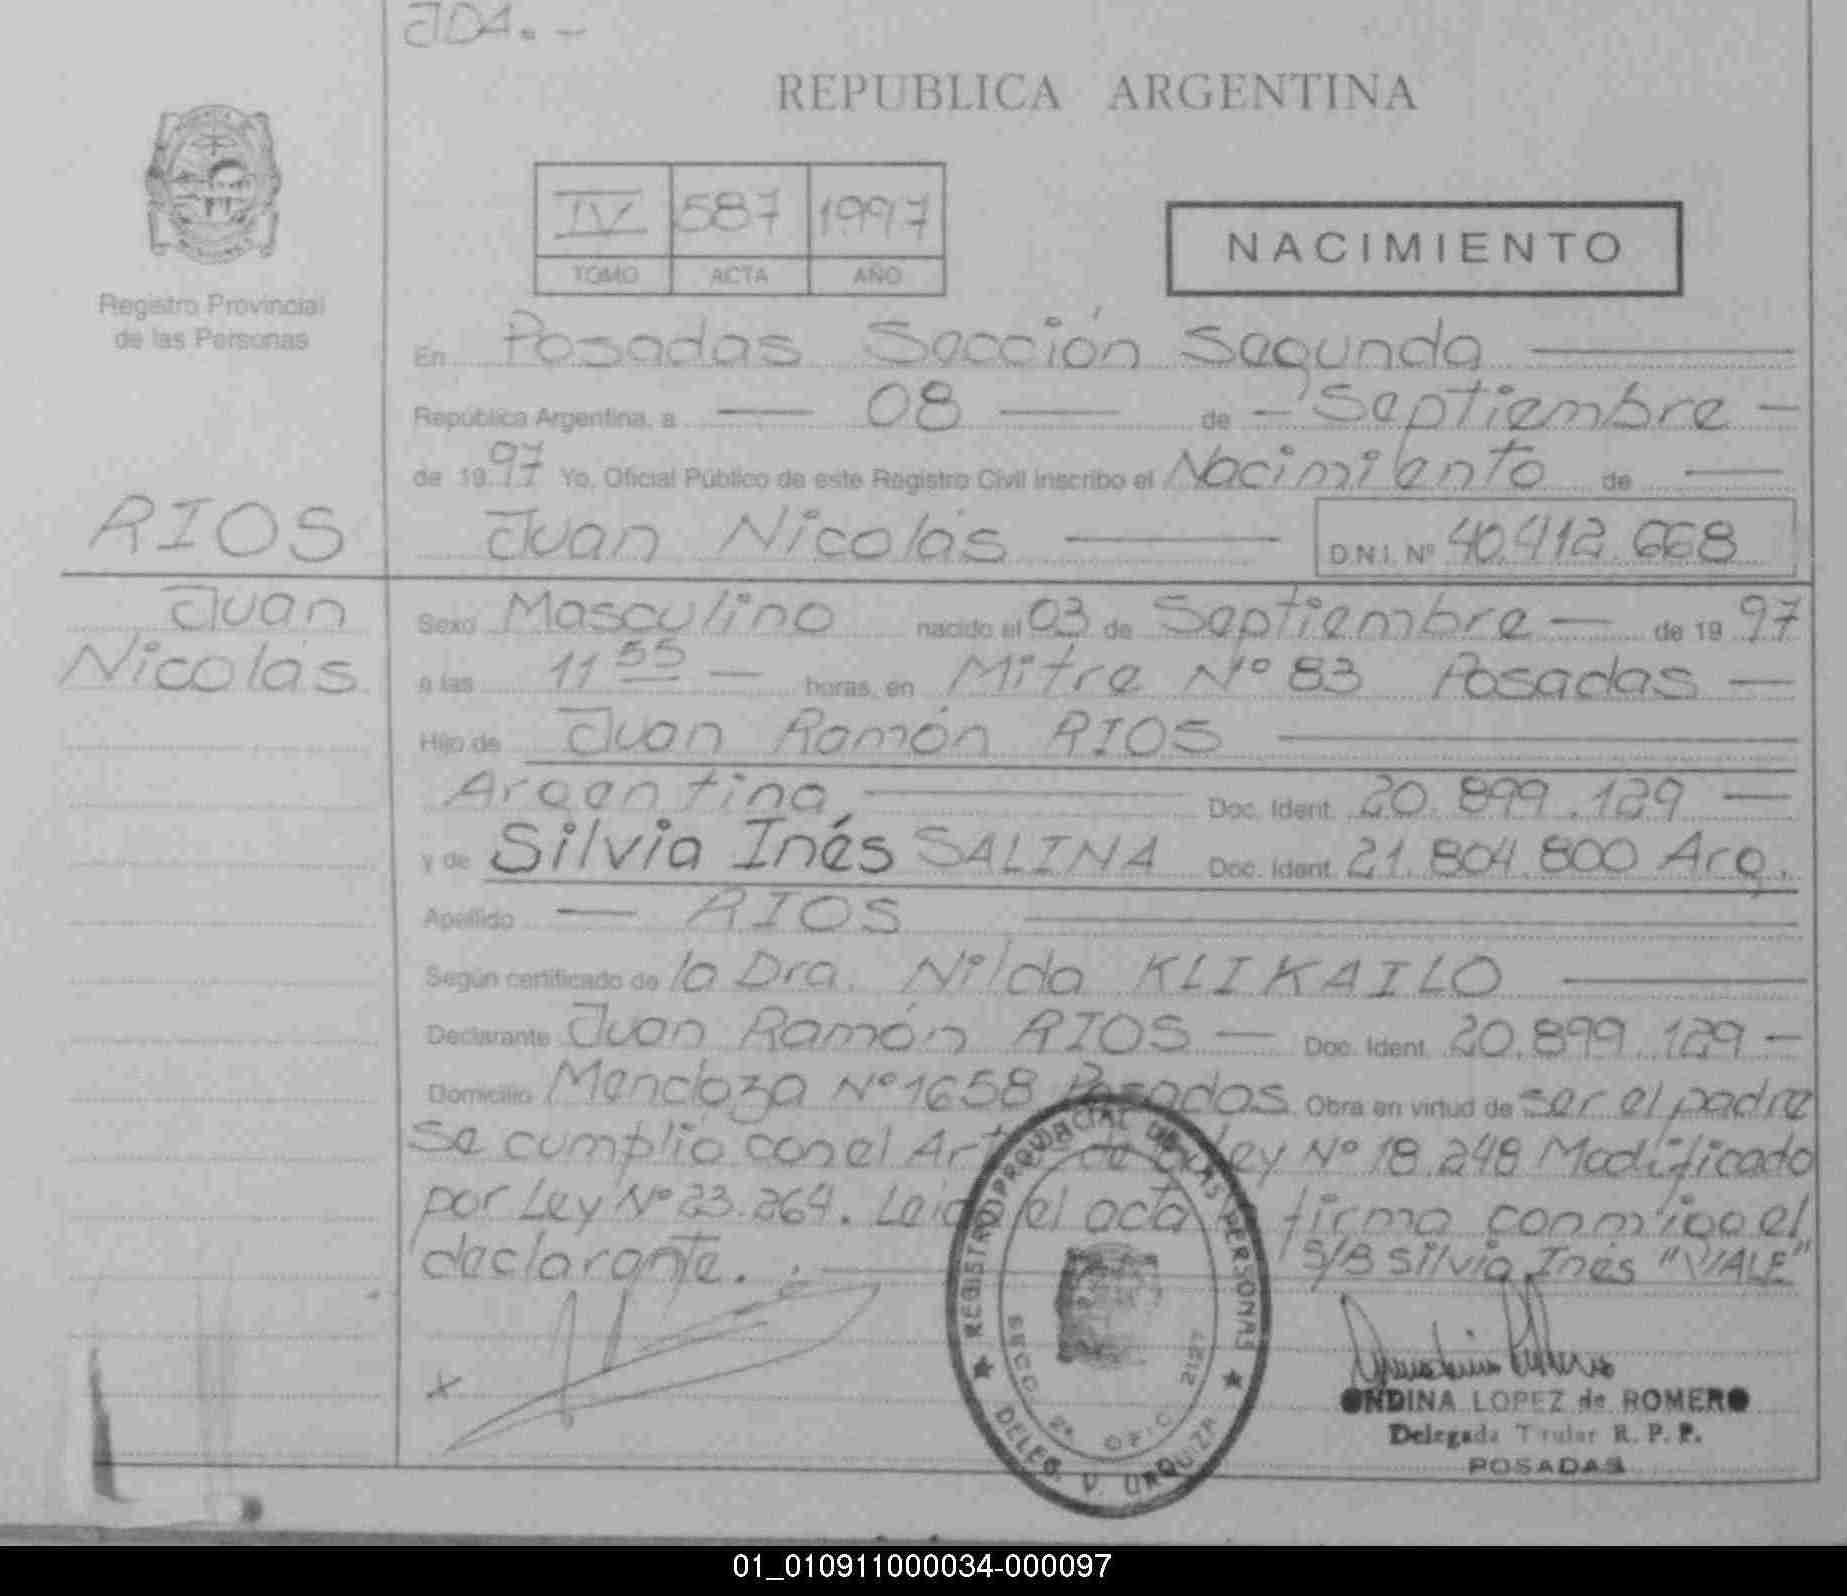 JDA.-
REPUBLICA ARGENTINA
IV 587 1997
TOMO ACTA AÑO
NACIMIENTO
Registro Provincial
de las Personas
En Posadas Sección Segunda
República Argentina, a 08 de Septiembre
de 1997 Yo, Oficial Público de este Registro Civil inscribo el Nacimiento de
RIOS
Juan Nicolás D.N.I. Nº 40.412.668
Juan
Nicolás
Sexo Masculino nacido el 03 de Septiembre de 1997
a las 11 55 horas, en Mitre Nº 83 Posadas
Hijo de Juan Ramón RIOS
Argentina, Doc. Ident. 20.899.129
y de Silvia Inés SALINA Doc. Ident. 21.804.800 Arg.
Apellido RIOS
Según certificado de la Dra. Nilda KLIKAILO
Declarante Juan Ramón RIOS Doc. Ident. 20.899.129
Domicilio Mendoza Nº 1658 Posadas Obra en virtud de ser el padre
Se cumplió con el Art de Ley Nº 18.248 Modificado
por Ley Nº 23.264. Leida el acta firma conmigo el
declarante.
S/B Silvia Inés "VIALE"
REGISTRO PROVINCIAL DE LAS PERSONAS
SECC. 2ª OFIC. 2127
DELEG. V. URQUIZA
ONDINA LOPEZ de ROMERO
Delegada Titular R. P. P.
POSADAS
01_010911000034-000097